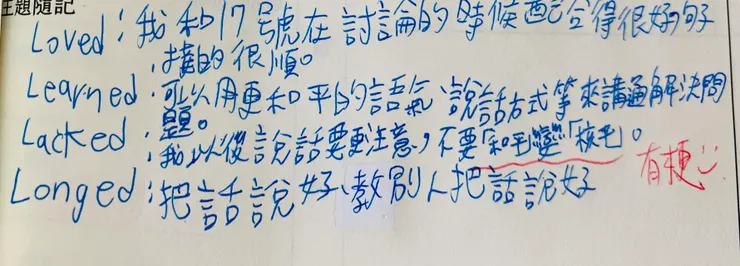 主題隨記
Loved:我和17號在討論的時候配合得很好,句子
接的很順。
Learned:可以用更和平的語氣、說話方式等來講通解決問
題。
Lacked:我以後說話要更注意,不要「和平」變「核平」。
Longed:把話說好、教別人把話說好
有梗